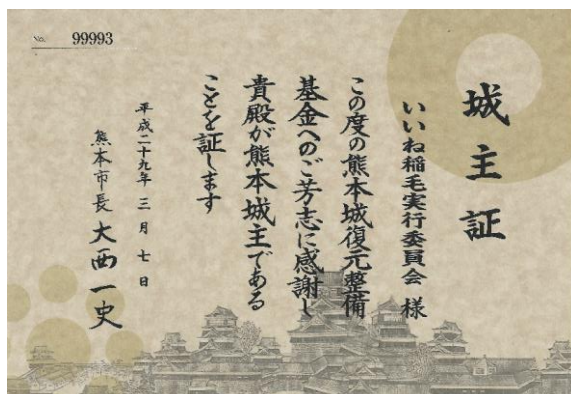 No. 99993
城主証
いいね稲毛実行委員会 様
この度の熊本城復元整備
基金へのご芳志に感謝し
貴殿が熊本城主である
ことを証します
平成二十九年 三月 七日
熊本市長 大西一史